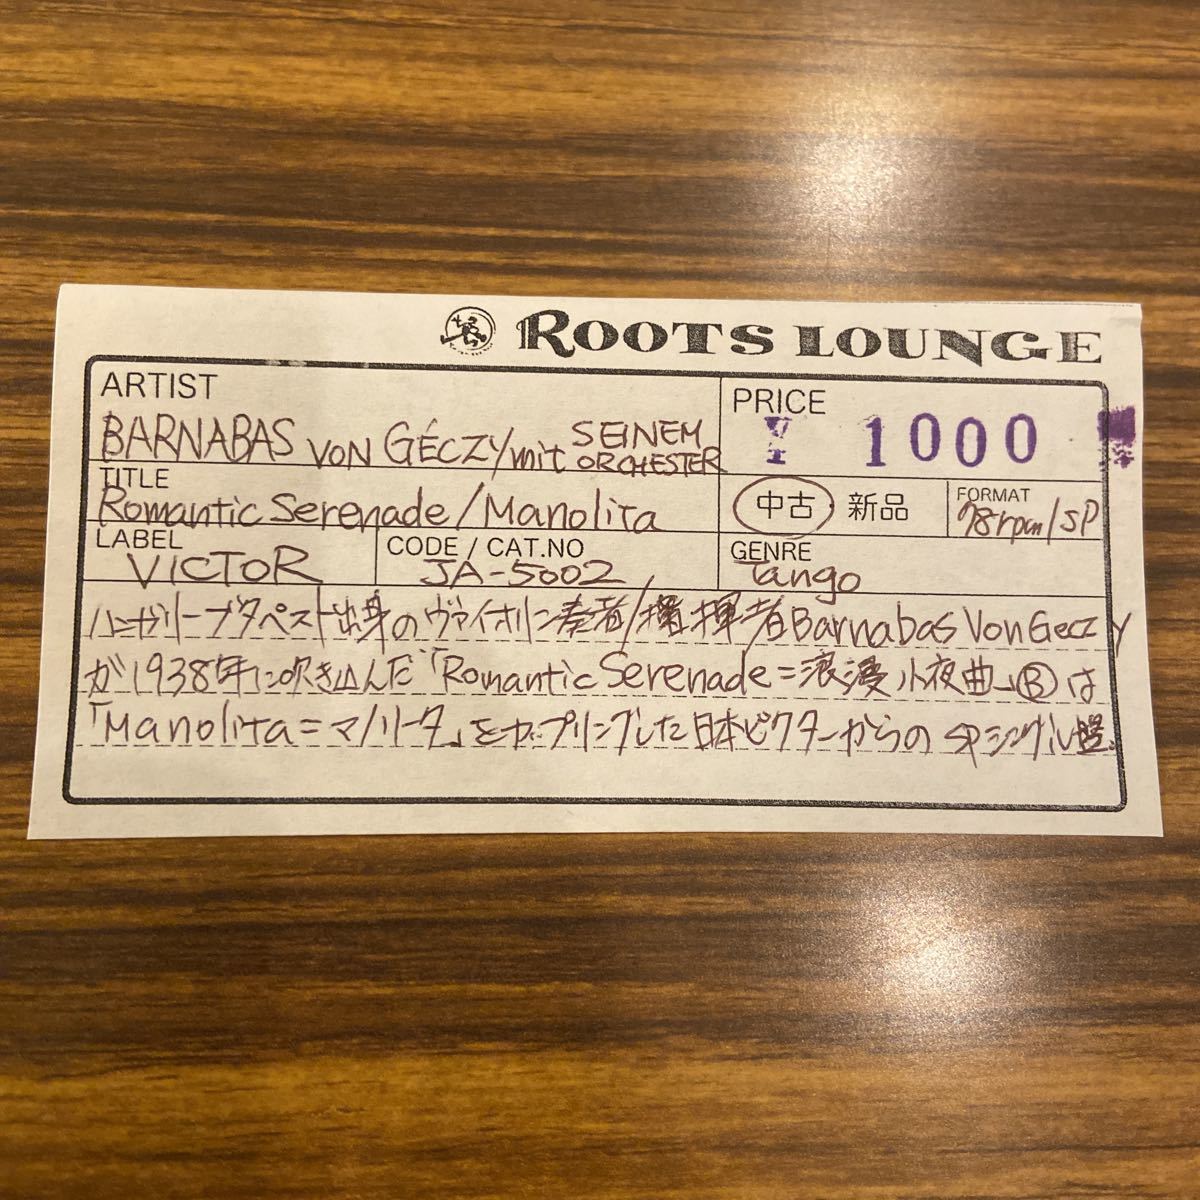 ROOTS LOUNGE
ARTIST
BARNABAS VON GÉCZY/mit SEINEM ORCHESTER
PRICE
¥ 1000
TITLE
Romantic Serenade/Manolita
中古 新品
FORMAT
78rpm/SP
LABEL
VICTOR
CODE / CAT.NO
JA-5002
GENRE
Tango
ハンガリーブダペスト出身のヴァイオリン奏者/指揮者Barnabas Von Geczy
が1938年に吹き込んだ「Romantic Serenade=浪漫小夜曲」Ⓑは
「Manolita=マノリータ」をカップリングした日本ビクターからのSPシングル盤。